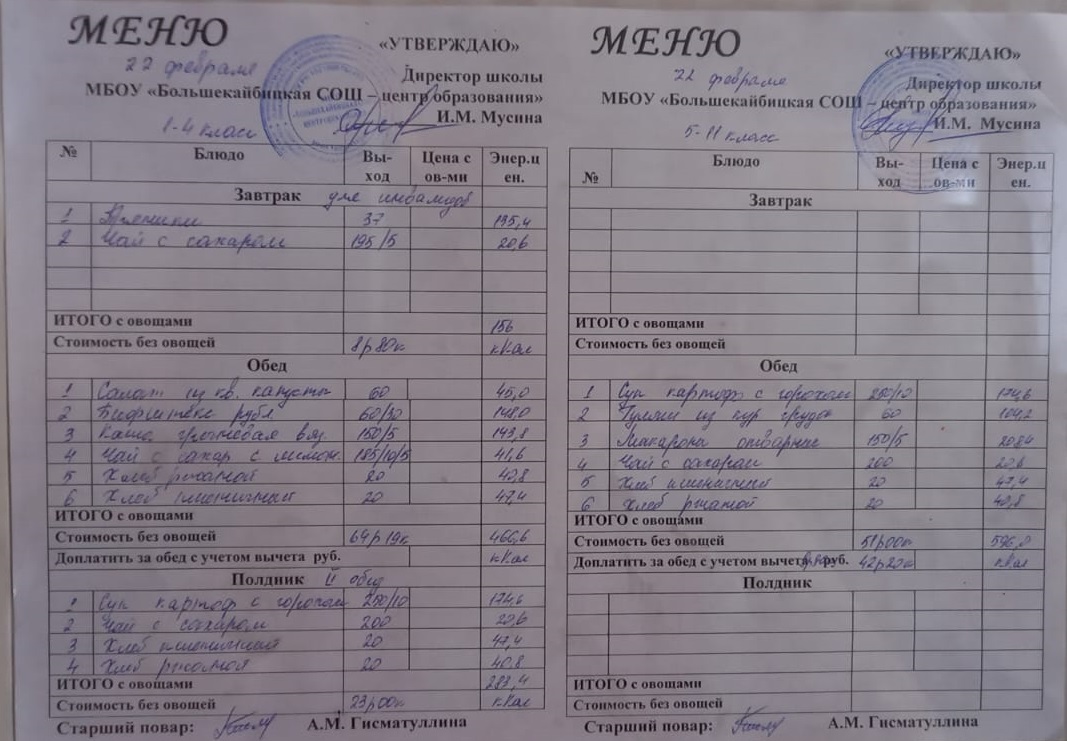 МЕНЮ
«УТВЕРЖДАЮ»
22 февраля
Директор школы
МБОУ «Большекайбицкая СОШ – центр образования»
1-4 класс
И.М. Мусина
№ Блюдо Вы-ход Цена с ов-ми Энер.ц ен.
Завтрак для инвалидов
1 37 135,4
2 Чай с сахаром 195/5 20,6
ИТОГО с овощами 156
Стоимость без овощей 8р80к кКал
Обед
1 Салат из кв. капусты 60 45,0
2 Бифштекс рубл 60/30 148,0
3 Каша гречневая вяз. 150/5 143,8
4 Чай с сахар с лимон. 185/10/5 41,6
5 Хлеб ржаной 20 40,8
6 Хлеб пшеничный 20 47,4
ИТОГО с овощами
Стоимость без овощей 64р19к 466,6
Доплатить за обед с учетом вычета руб. кКал
Полдник II обед
1 Суп картоф с горохом 250/10 174,6
2 Чай с сахаром 200 20,6
3 Хлеб пшеничный 20 47,4
4 Хлеб ржаной 20 40,8
ИТОГО с овощами 283,4
Стоимость без овощей 23р00к кКал
Старший повар: А.М. Гисматуллина
МЕНЮ
«УТВЕРЖДАЮ»
22 февраля
Директор школы
МБОУ «Большекайбицкая СОШ – центр образования»
5-11 класс
И.М. Мусина
№ Блюдо Вы-ход Цена с ов-ми Энер.ц ен.
Завтрак
ИТОГО с овощами
Стоимость без овощей
Обед
1 Суп картоф с горохом 250/10 174,6
2 Гуляш из кур грудок 60 104,2
3 Макароны отварные 150/5 208,4
4 Чай с сахаром 200 20,6
5 Хлеб пшеничный 20 47,4
6 Хлеб ржаной 20 40,8
ИТОГО с овощами
Стоимость без овощей 51р00к 596,0
Доплатить за обед с учетом вычета руб. 42р20к кКал
Полдник
ИТОГО с овощами
Стоимость без овощей
Старший повар: А.М. Гисматуллина